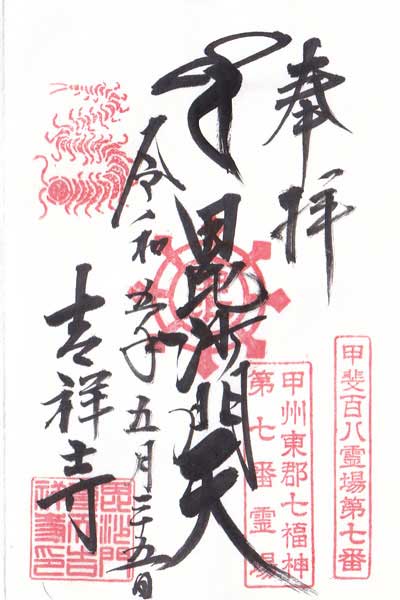 奉拝
甲斐百八霊場第七番
甲州東郡七福神
第七番霊場
毘沙門天
令和五年五月二十五日
吉祥寺